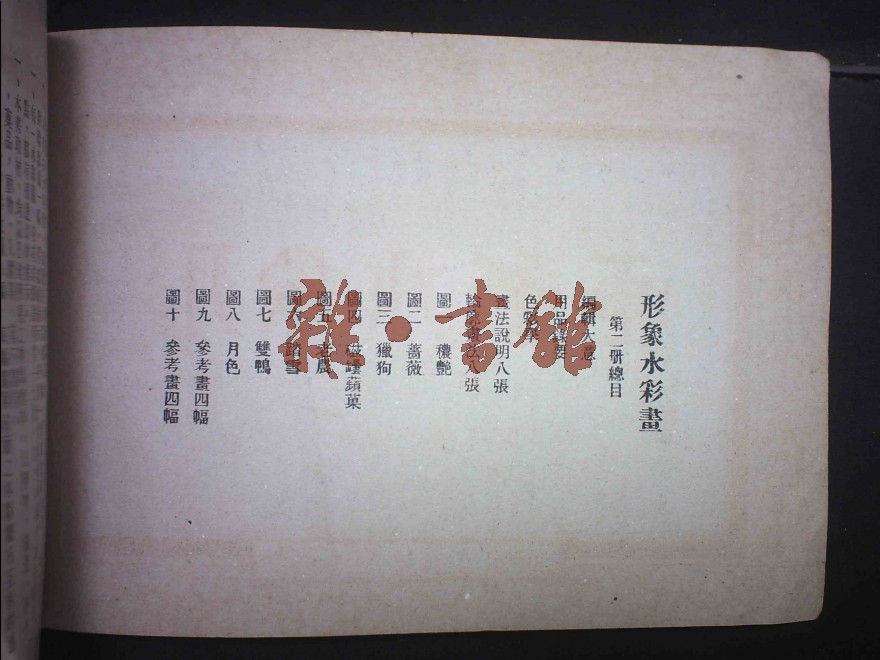 形象水彩畫
第二册總目
編輯大意
用品錄要
畫法說明八張
法八張
圖一 穠艷
圖二 薔薇
圖三 獵狗
圖四 磁罎蘋菓
圖五 老農
圖六 踏雪
圖七 雙鴨
圖八 月色
圖九 參考畫四幅
圖十 參考畫四幅
雜·書館